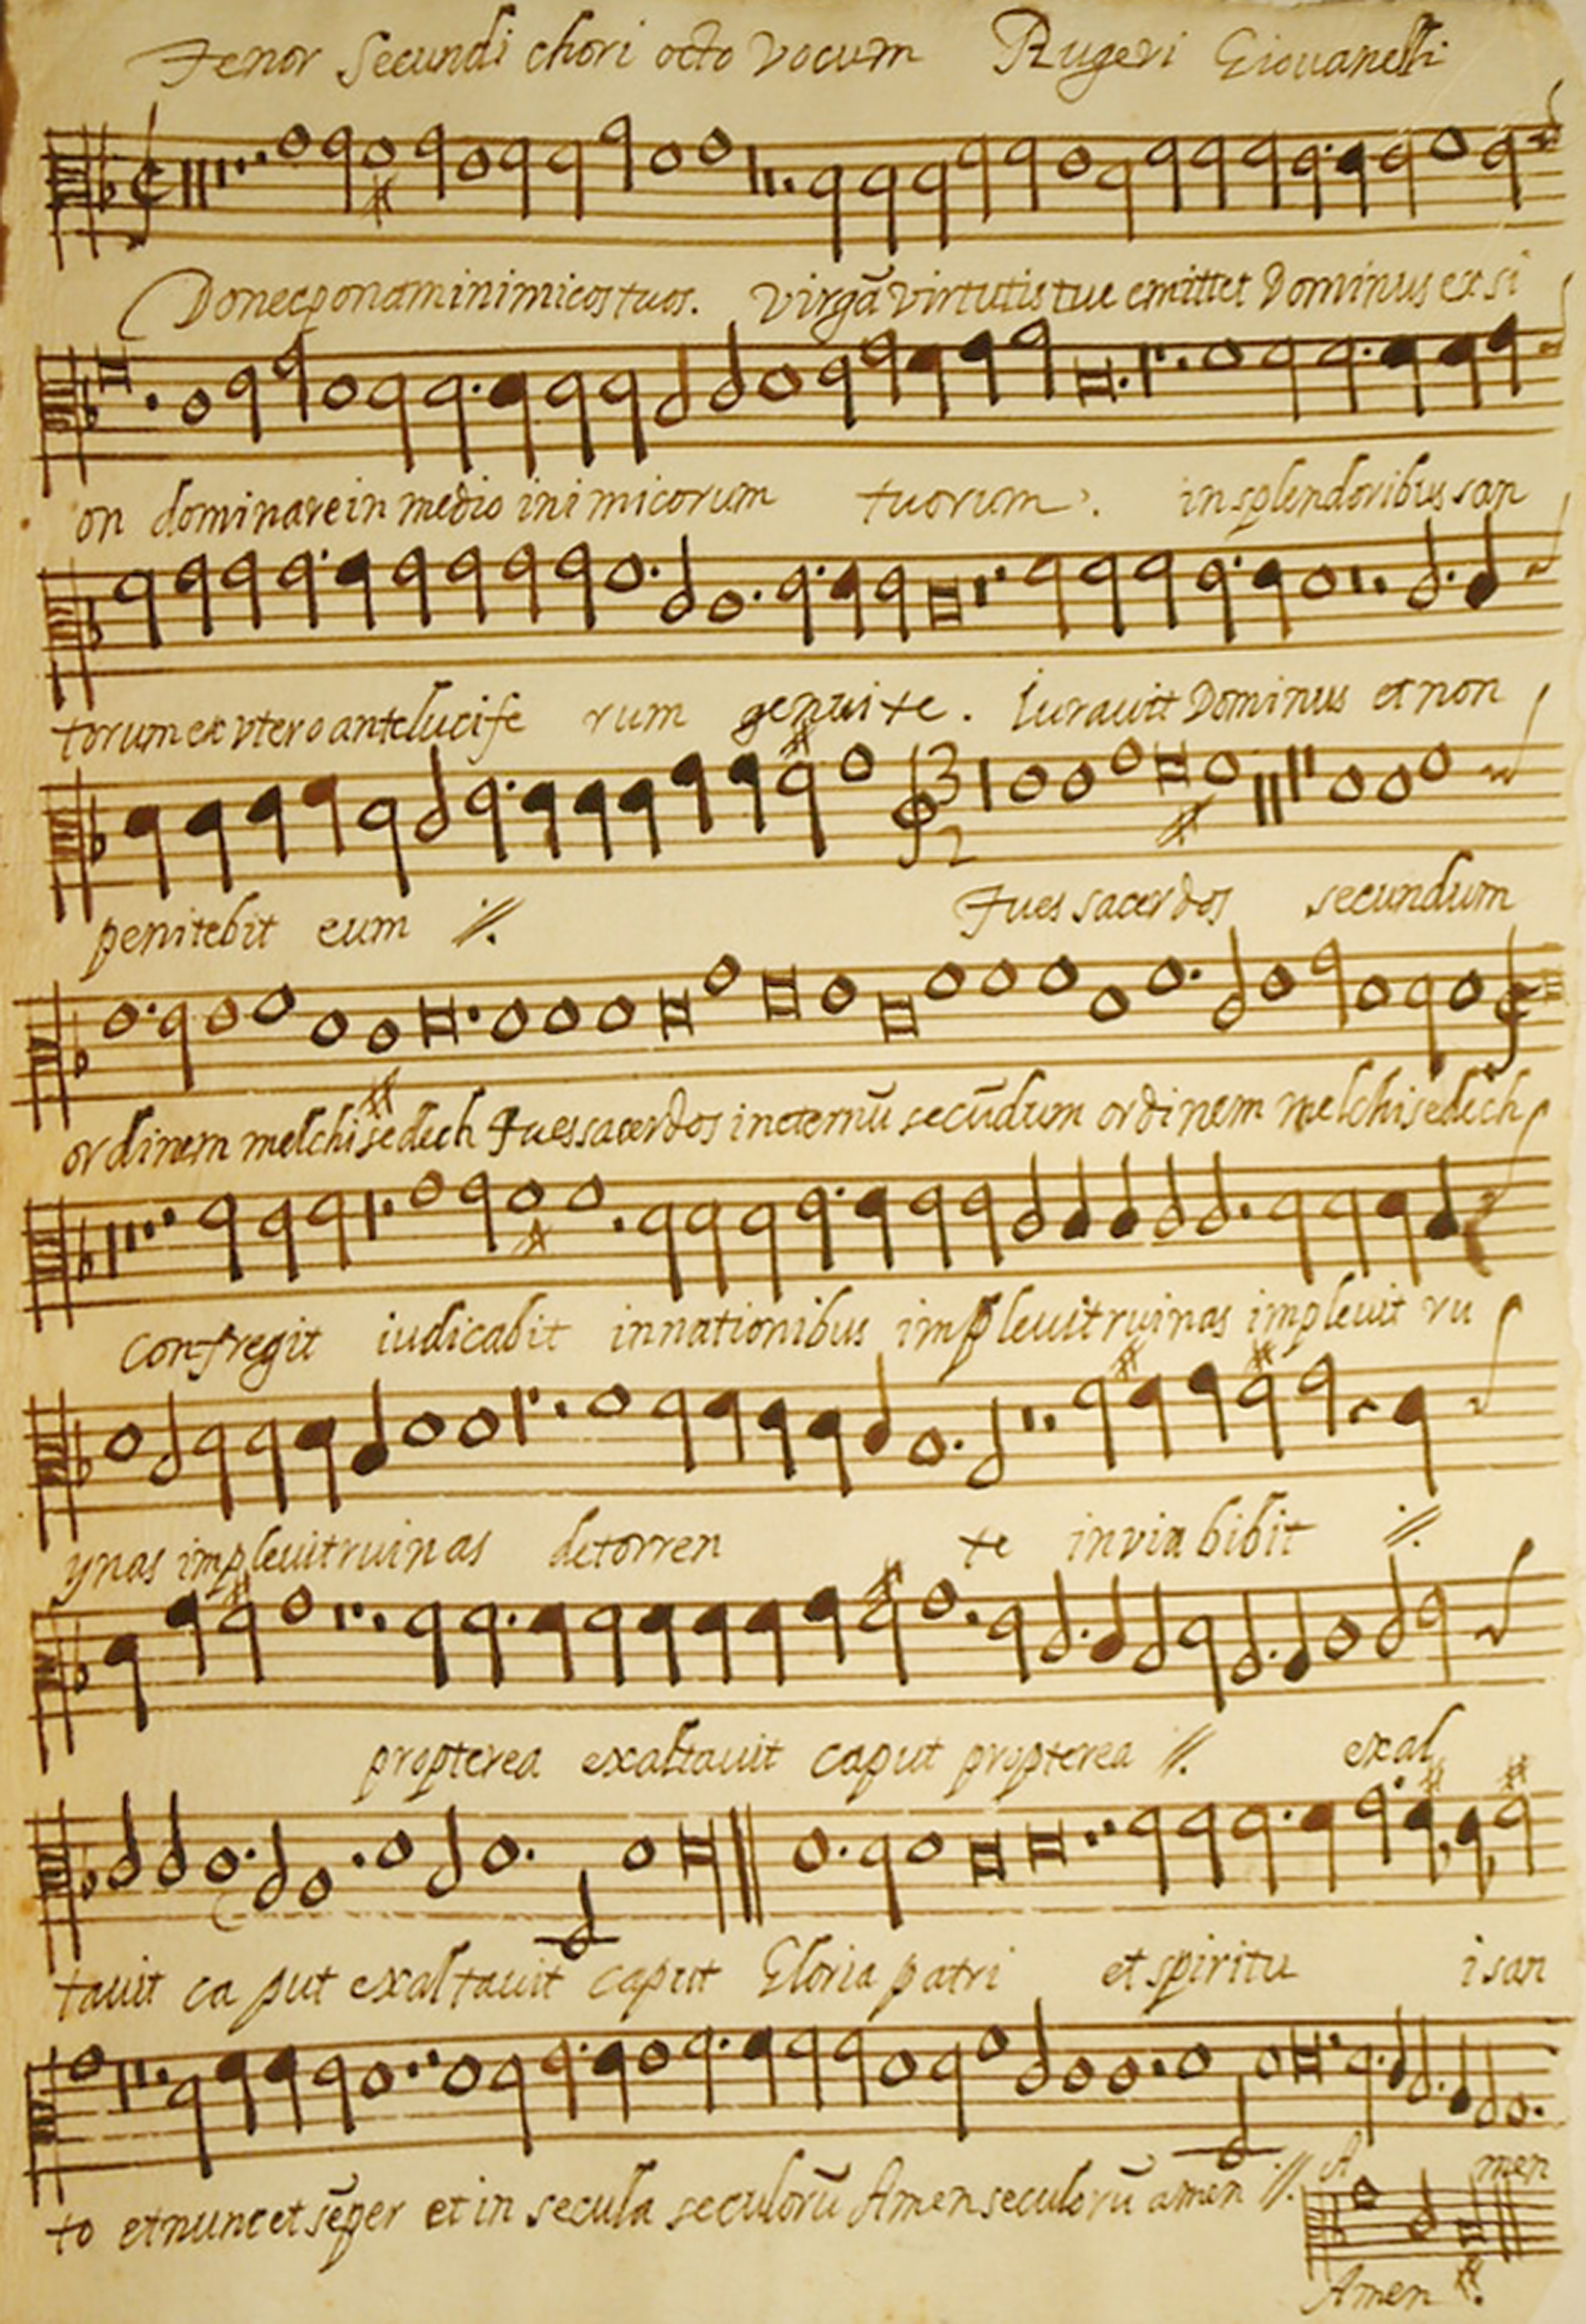 Tenor Secundi chori octo vocum Rugeri Giovanelli
Donec ponam inimicos tuos. Virgā virtutis tue emittet Dominus ex si
on dominare in medio inimicorum tuorum. in splendoribus san
torum ex vtero ante lucife rum genui te. Iurauit Dominus et non
penitebit eum //. Tu es sacerdos secundum
ordinem melchisedech Tu es sacerdos in eternū secūdum ordinem melchisedech
confregit iudicabit in nationibus impleuit ruinas impleuit ru
ynas impleuit ruinas de torren te in via bibit //.
propterea exaltauit caput propterea //. exal
tauit ca put exaltauit caput Gloria patri et spiritu i san
to et nunc et sēper et in secula seculorū Amen seculorū amen //. A men
Amen //.